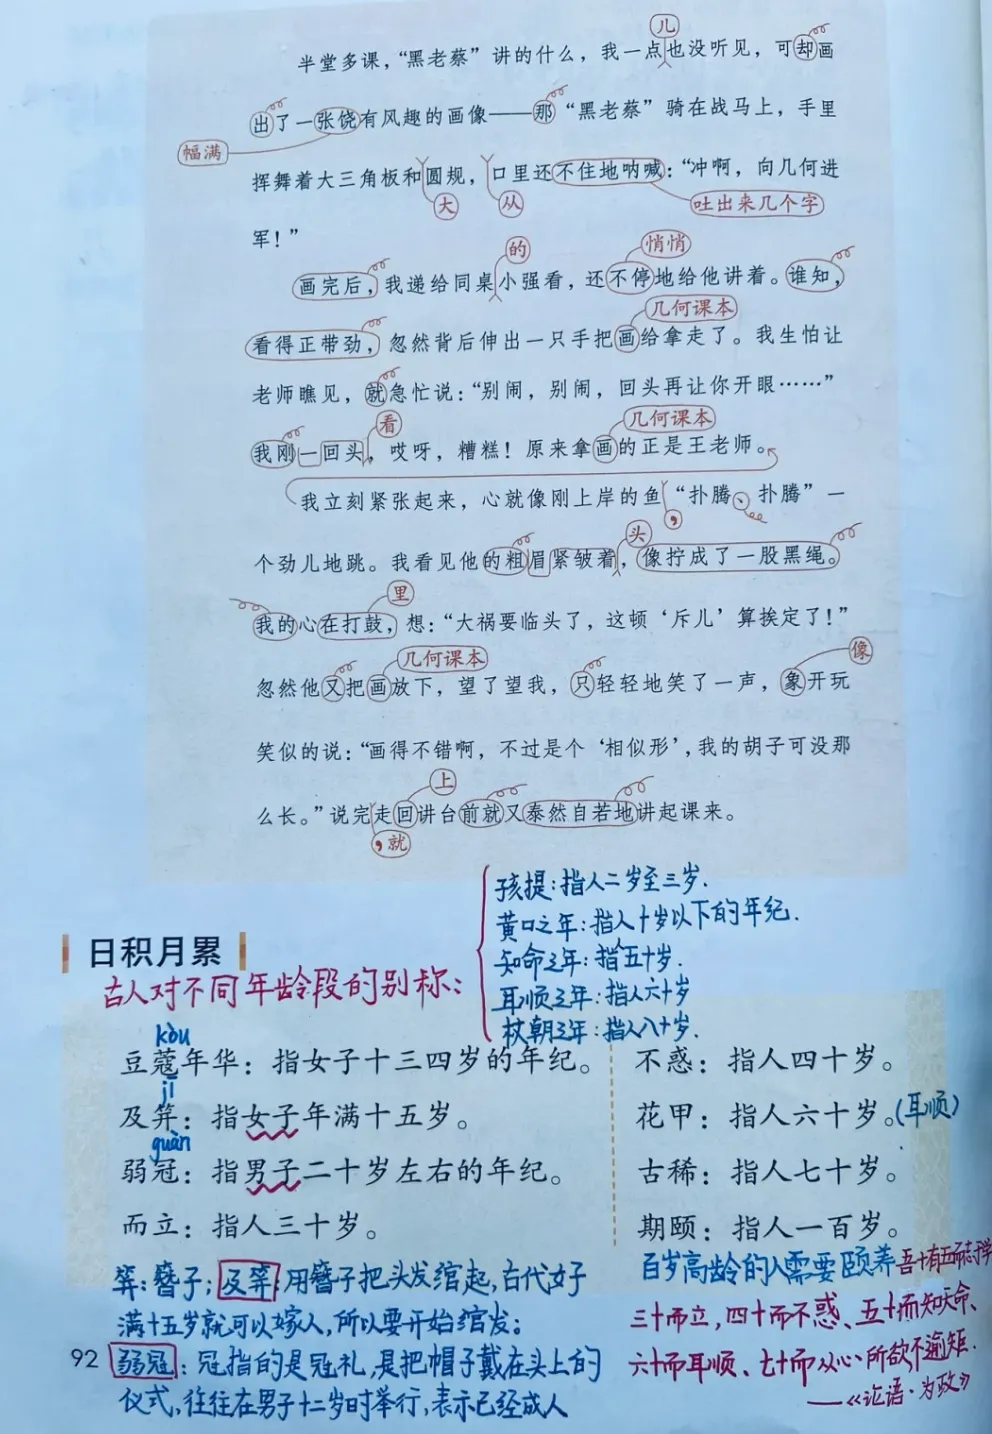 儿
半堂多课，“黑老蔡”讲的什么，我一点也没听见，可却画
出了一张饶有风趣的画像——那“黑老蔡”骑在战马上，手里
幅满
挥舞着大三角板和圆规，口里还不住地呐喊：“冲啊，向几何进
大 从 吐出来几个字
军！”
的 悄悄
画完后，我递给同桌小强看，还不停地给他讲着。谁知，
几何课本
看得正带劲，忽然背后伸出一只手把画给拿走了。我生怕让
老师瞧见，就急忙说：“别闹，别闹，回头再让你开眼……”
看 几何课本
我刚一回头，哎呀，糟糕！原来拿画的正是王老师。
我立刻紧张起来，心就像刚上岸的鱼“扑腾、扑腾”一
， 头
个劲儿地跳。我看见他的粗眉紧皱着，像拧成了一股黑绳。
里
我的心在打鼓，想：“大祸要临头了，这顿‘斥儿’算挨定了！”
几何课本 像
忽然他又把画放下，望了望我，只轻轻地笑了一声，象开玩
笑似的说：“画得不错啊，不过是个‘相似形’，我的胡子可没那
上
么长。”说完走回讲台前就又泰然自若地讲起课来。
，就
孩提：指人二岁至三岁.
黄口之年：指人十岁以下的年纪.
知命之年：指五十岁.
耳顺之年：指人六十岁
杖朝之年：指人八十岁.
日积月累
古人对不同年龄段的别称：
kòu
豆蔻年华：指女子十三四岁的年纪。
jī
及笄：指女子年满十五岁。
guàn
弱冠：指男子二十岁左右的年纪。
而立：指人三十岁。
不惑：指人四十岁。
花甲：指人六十岁。（耳顺）
古稀：指人七十岁。
期颐：指人一百岁。
笄：簪子；及笄：用簪子把头发绾起，古代女子
满十五岁就可以嫁人，所以要开始绾发；
弱冠：冠指的是冠礼，是把帽子戴在头上的
仪式，往往在男子十二岁时举行，表示已经成人
百岁高龄的人需要颐养
吾十有五而志于学
三十而立，四十而不惑、五十而知天命、
六十而耳顺、七十而从心所欲不逾矩.
——《论语·为政》
92